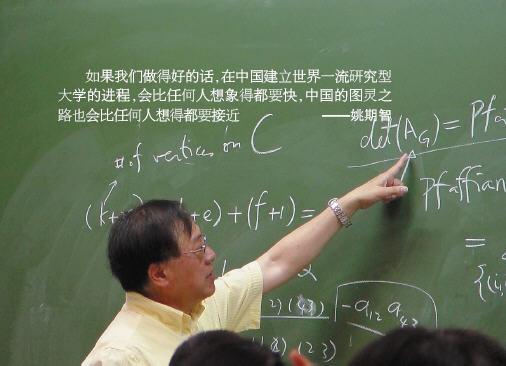 如果我们做得好的话，在中国建立世界一流研究型
大学的进程，会比任何人想象得都要快，中国的图灵之
路也会比任何人想得都要接近 ——姚期智
# of vertices in C
det(A_G) = Pfa
Pfaffian
+e) + (f+1) =
=
2
-a₁₂ a₄₃
2) (43)
(2 3)